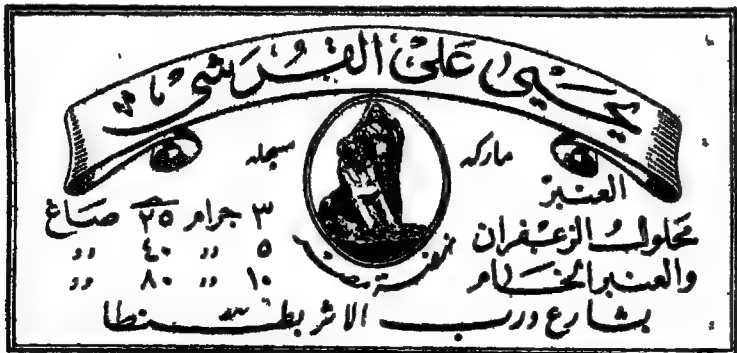 يحيى على القرشى
ماركه سجله
نهضة مصر
العنبر
محلول الزعفران
والعنبر الخام
٣ جرام ٢٥ صاغ
٥ " ٤٠ "
١٠ " ٨٠ "
بشارع درب الاثر بطنطا